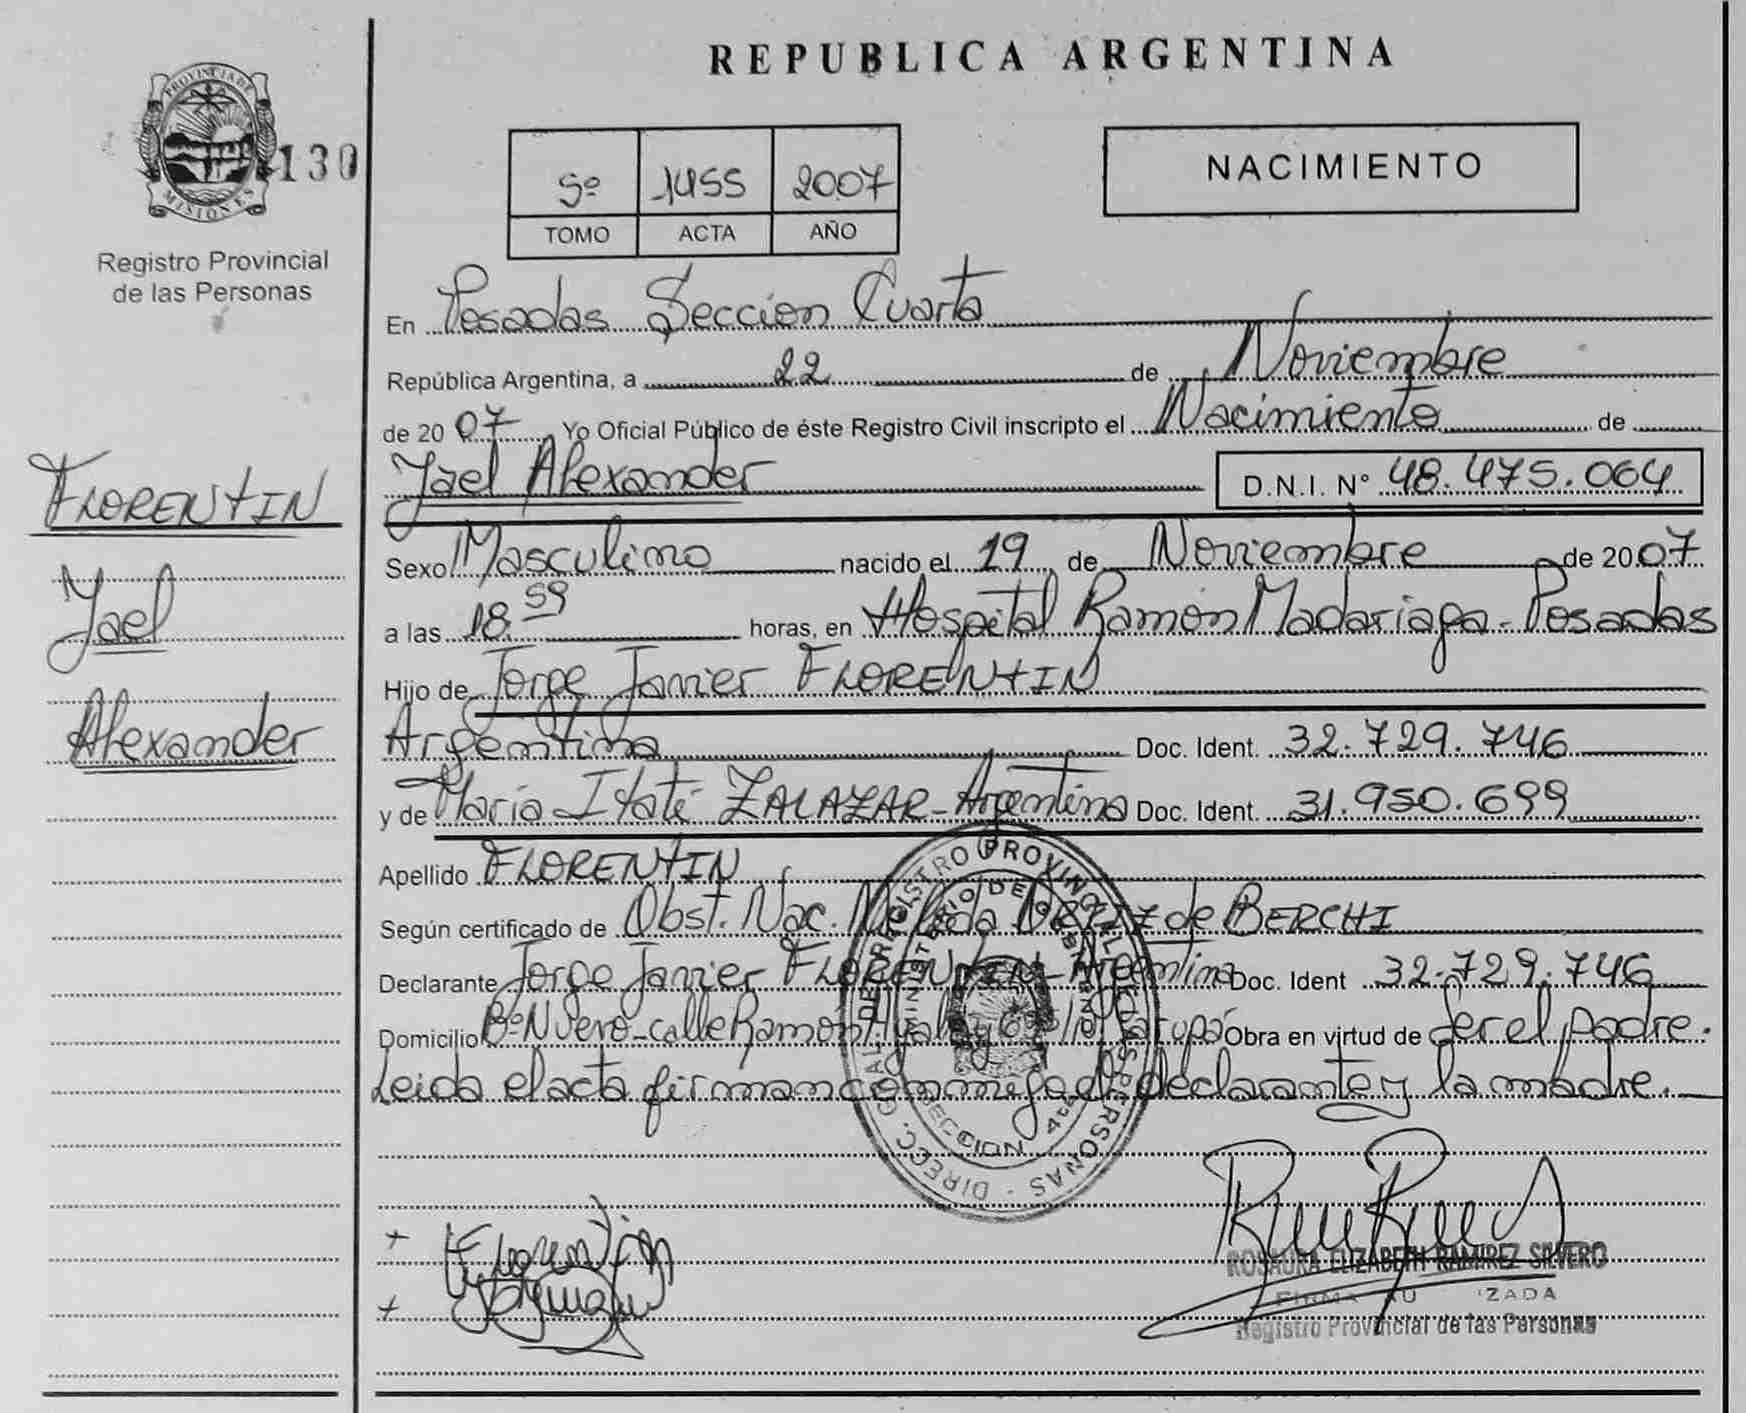 REPUBLICA ARGENTINA
PROVINCIA DE
MISIONES
130
Registro Provincial
de las Personas
5º 1455 2007
TOMO ACTA AÑO
NACIMIENTO
En Posadas Seccion Cuarta
República Argentina, a 22 de Noviembre
de 2007 Yo Oficial Público de éste Registro Civil inscripto el Nacimiento de
Yael Alexander D.N.I. Nº 48.475.064
FLORENTIN
Yael
Alexander
Sexo Masculino nacido el 19 de Noviembre de 2007
a las 18.59 horas, en Hospital Ramón Madariaga - Posadas
Hijo de Jorge Javier FLORENTIN
Argentina Doc. Ident. 32.729.746
y de María Itatí ZALAZAR - Argentina Doc. Ident. 31.950.699
Apellido FLORENTIN
Según certificado de Obst. Nac. de BERCHI
Declarante Jorge Javier FLORENTIN - Argentina Doc. Ident 32.729.746
Domicilio Bº Nuevo - calle Ramon Obra en virtud de ser el padre.
Leida el acta firman conmigo el declarante y la madre.
DIRECC. GRAL. DE REGISTRO PROVINCIAL DE LAS PERSONAS
MINISTERIO DE GOBIERNO
SECCION 4ta
Florentin
ROSAURA ELIZABETH RAMIREZ SILVERO
FIRMA
Registro Provincial de las Personas